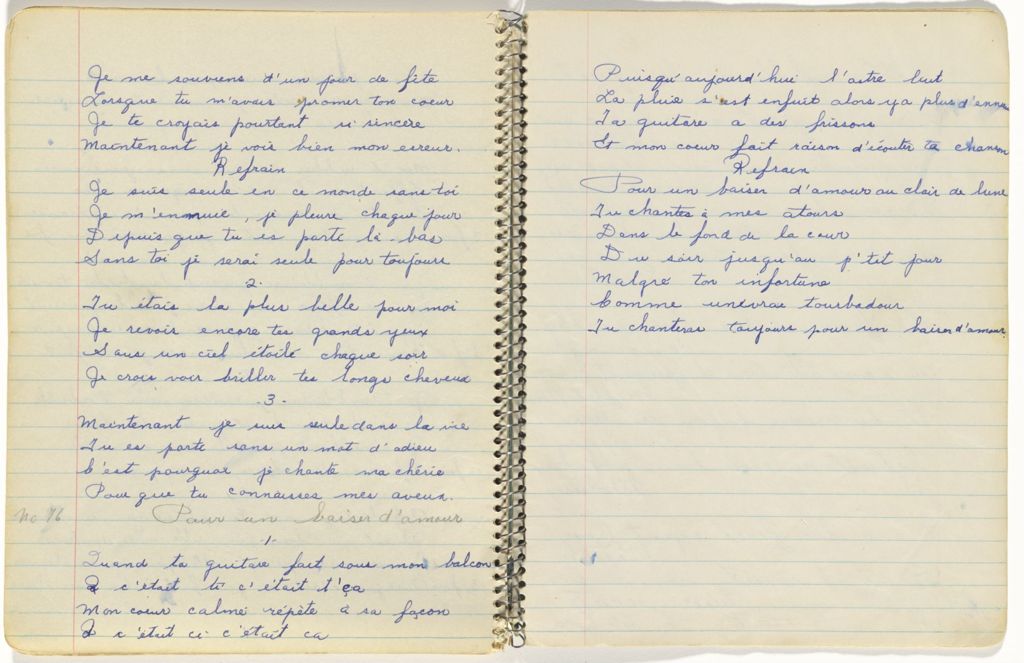 Je me souviens d'un jour de fête
Lorsque tu m'avais promer ton coeur
Je te croyais pourtant si sincère
Maintenant je vois bien mon erreur.
Refrain
Je suis seule en ce monde sans toi
Je m'ennuie, je pleure chaque jour
Depuis que tu es parti là-bas
Sans toi je serai seule pour toujours
2.
Tu étais la plus belle pour moi
Je revoir encore tes grands yeux
Sous un ciel étoilé chaque soir
Je crois voir briller tes longs cheveux
-3-
Maintenant je suis seule dans la vie
Tu es parti sans un mot d'adieu
C'est pourquoi je chante ma chérie
Pour que tu connaisses mes aveux.
no 76 Pour un baiser d'amour
1.
Quand ta guitare fait sous mon balcon
c'était ti c'était t'ça
Mon coeur calmé répète à sa façon
c'était ci c'était ca
Puisqu'aujourd'hui l'astre luit
La pluie s'est enfuit alors ya plus d'ennui
Ta guitare a des frissons
Et mon coeur fait raison d'écouter ta chanson
Refrain
Pour un baiser d'amour au clair de lune
Tu chantes à mes atours
Dans le fond de la cour
Du soir jusqu'au p'tit jour
Malgré ton infortune
Comme unevrai tourbadour
Tu chanteras toujours pour un baiser d'amour